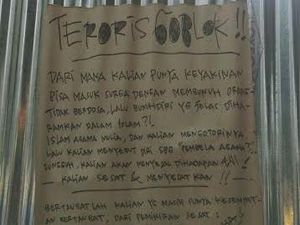 TERORIS GOBLOK!!
DARI MANA KALIAN PUNYA KEYAKINAN
BISA MASUK SURGA DENGAN MEMBUNUH ORANG
TIDAK BERDOSA, LALU BUNUH DIRI YG JELAS DIHA-
RAMKAN DALAM ISLAM?!
ISLAM AGAMA MULIA, DAN KALIAN MENGOTORINYA
LALU KALIAN MENYEBUT DIRI SBG "PEMBELA AGAMA?"
SUNGGUH, KALIAN AKAN MENYESAL DIHADAPAN-NYA!
KALIAN SESAT & MENYESATKAN!!
BERTAUBATLAH KALIAN YG MASIH PUNYA KESEMPAT-
AN BERTAUBAT, DARI PEMIKIRAN SESAT!